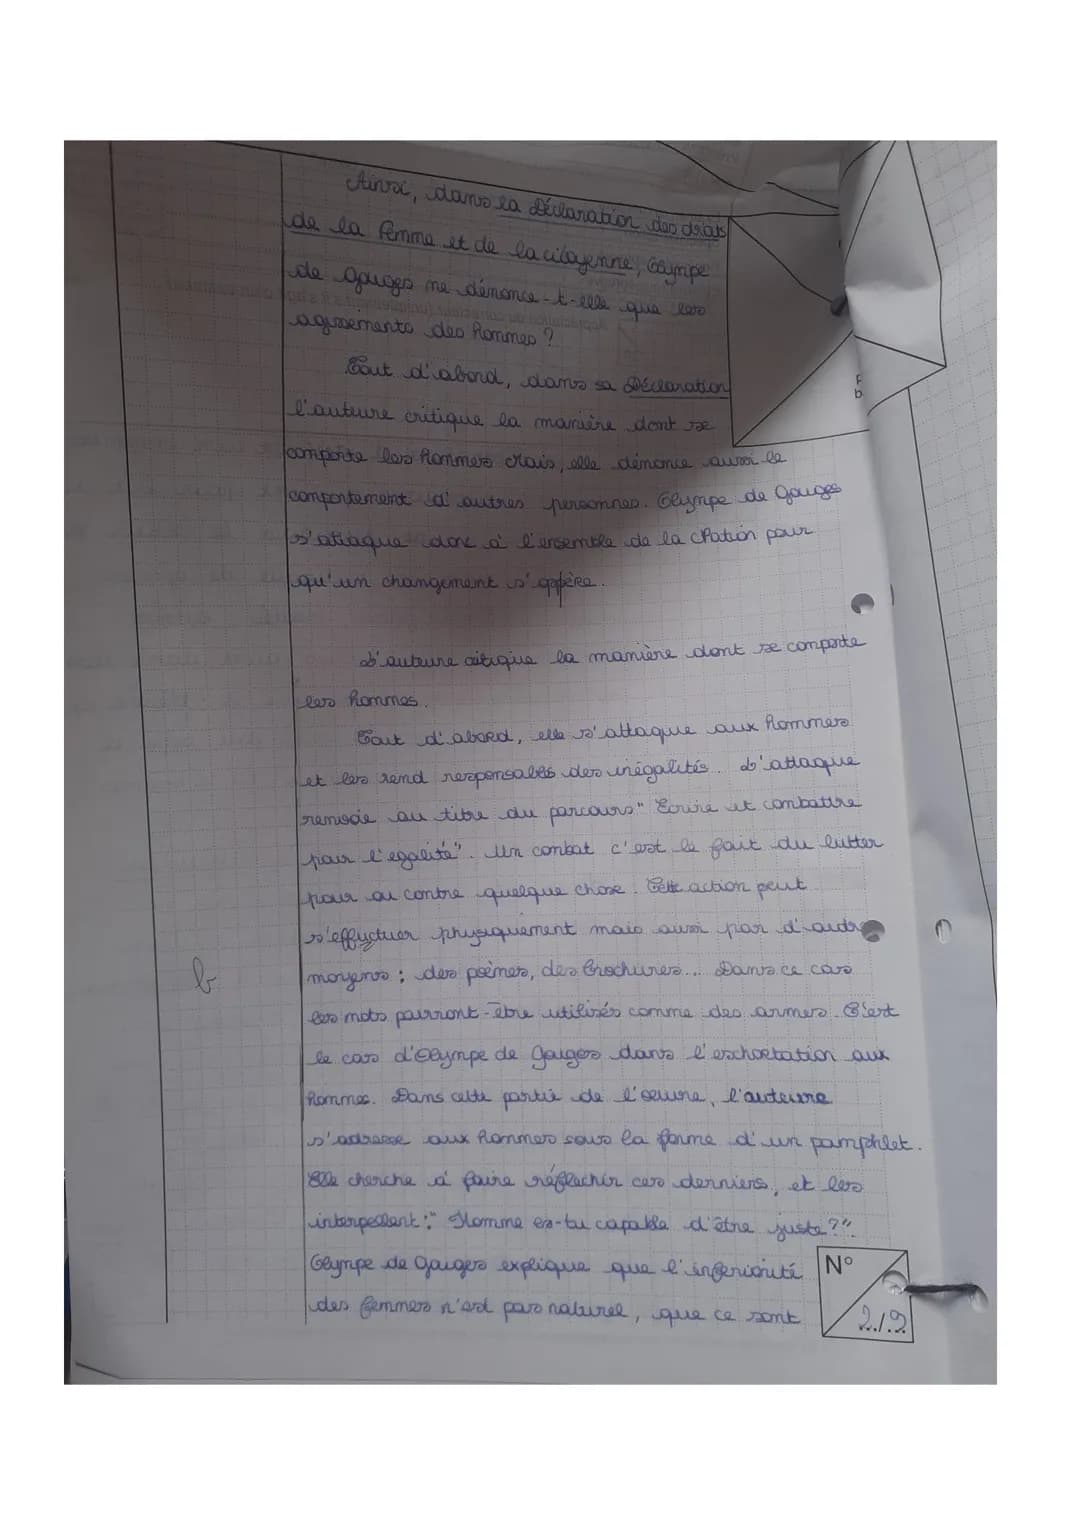 Ainsi, dans la Déclaration des droits
de la femme et de la citoyenne, Olympe
de Gouges ne dénonce-t-elle que les
agissements des hommes ?
Tout d'abord, dans sa Déclaration
l'auteure critique la manière dont se
comporte les hommes Mais, elle dénonce aussi le
comportement d'autres personnes. Olympe de Gouges
s'attaque donc à l'ensemble de la Nation pour
qu'un changement s'oppère.
L'auteure critique la manière dont se comporte
les hommes.
Tout d'abord, elle s'attaque aux hommes
et les rend responsables des inégalités. L'attaque
renvoie au titre du parcours "Ecrire et combattre
pour l'egalité". Un combat c'est le fait du lutter
pour ou contre quelque chose. Cette action peut
s'effectuer physiquement mais aussi par d'autre
moyens : des poèmes, des brochures... Dans ce cas
les mots pourront-être utilisés comme des armes. C'est
le cas d'Olympe de Gouges dans l'exhortation aux
hommes. Dans cette partie de l'oeuvre, l'auteure
s'adresse aux hommes sous la forme d'un pamphlet.
Elle cherche à faire réfléchir ces derniers, et les
interpellent : "Homme es-tu capable d'être juste ?".
Olympe de Gouges explique que l'inferiorité
des femmes n'est pas naturel, que ce sont
b
N°
2/9